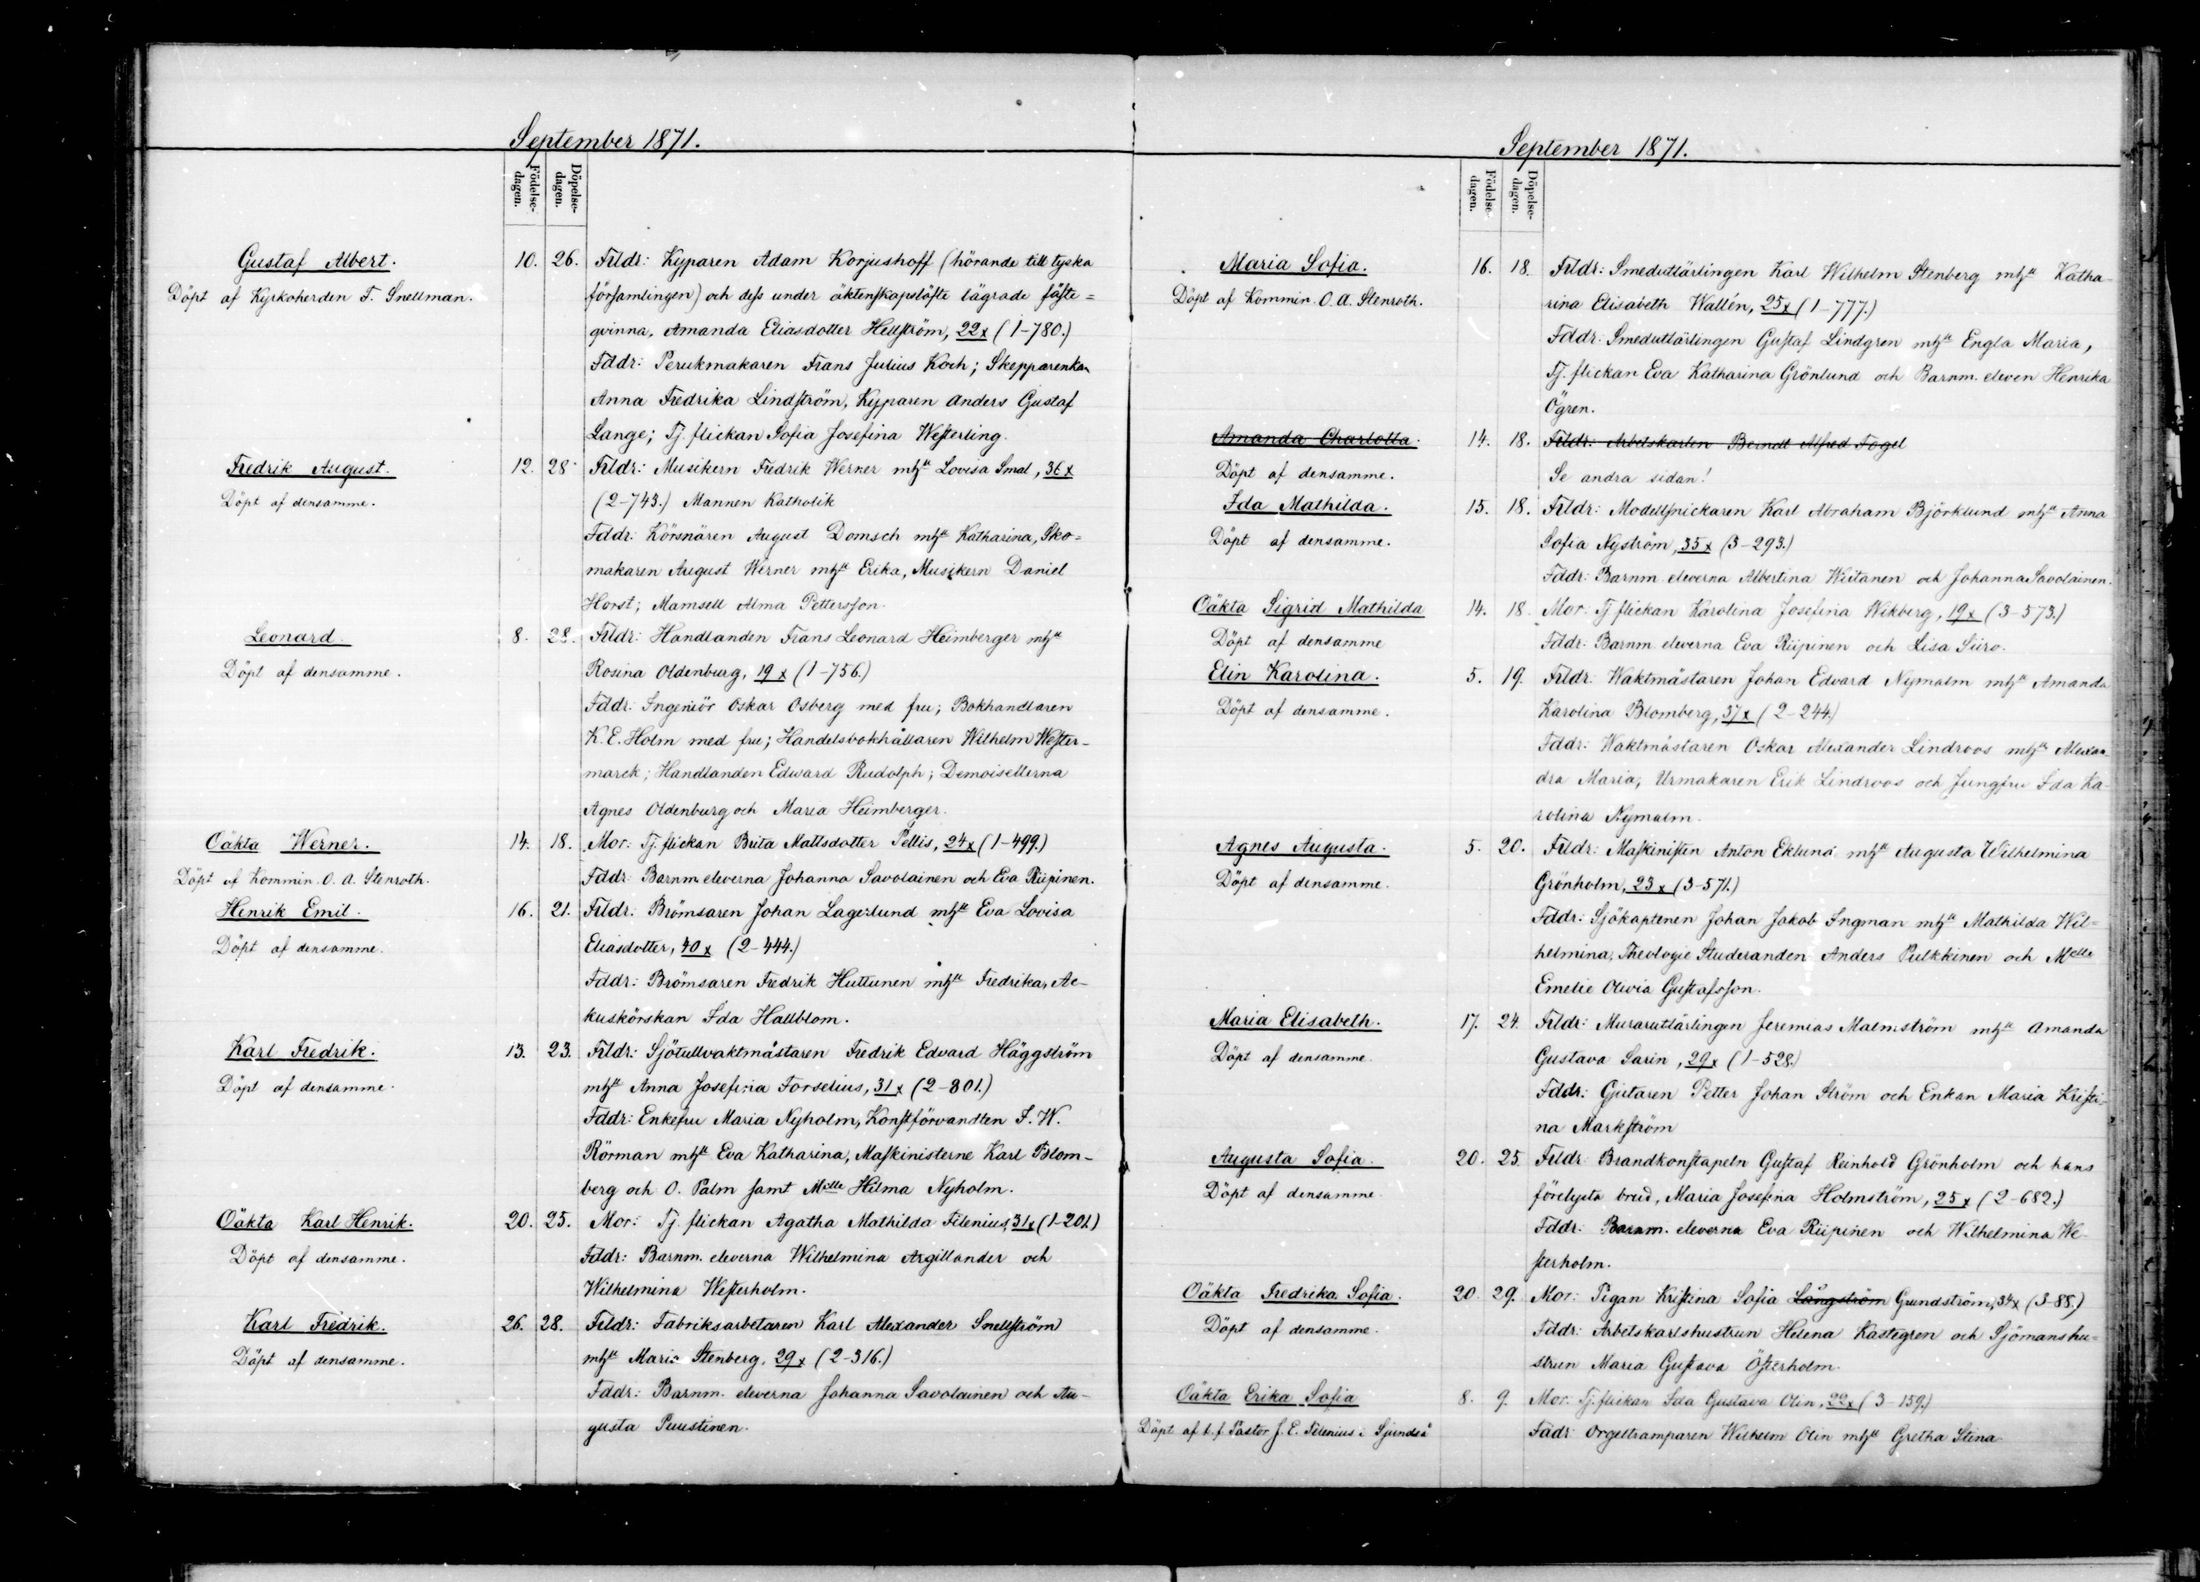 September 1871.
Födelse-dagen. Döpelse-dagen.
Gustaf Albert. 10. 26. Frldr: Kyparen Adam Korjushoff (hörande till tyska
Döpt af Kyrkoherden F. Snellman. församlingen) och dess under äktenskapslöfte lägrade fäste=
qvinna, Amanda Eliasdotter Hellström, 22x (1-780.)
Fddr: Perukmakaren Frans Julius Koch; Skepparenkan
Anna Fredrika Lindström, Kyparen Anders Gustaf
Lange; Tj. flickan Sofia Josefina Westerling.
Fredrik August. 12. 28. Frldr: Musikern Fredrik Werner mhu Lovisa Smal, 36x
Döpt af densamme. (2-743.) Mannen Katholik
Fddr: Körsnären August Domsch mhu Katharina, Sko=
makaren August Werner mhu Erika, Musikern Daniel
Horst; Mamsell Alma Pettersson.
Leonard. 8. 28. Frldr: Handlanden Frans Leonard Heimberger mhu
Döpt af densamme. Rosina Oldenburg, 19x (1-756.)
Fddr: Ingeniör Oskar Osberg med fru; Bokhandlaren
K. E. Holm med fru; Handelsbokhållaren Wilhelm Wester-
marck; Handlanden Edward Rudolph; Demoisellerna
Agnes Oldenburg och Maria Heimberger.
Oäkta Werner. 14. 18. Mor: Tj. flickan Brita Mattsdotter Pellis, 24x (1-499.)
Döpt af Kommin. O. A. Stenroth. Fddr: Barnm. eleverna Johanna Savolainen och Eva Riipinen.
Henrik Emil. 16. 21. Frldr: Brömsaren Johan Lagerlund mhu Eva Lovisa
Döpt af densamme. Eliasdotter, 40x (2-444.)
Fddr: Brömsaren Fredrik Huttunen mhu Fredrika, Ae-
kuskörskan Ida Hallblom.
Karl Fredrik. 13. 23. Frldr: Sjötullvaktmästaren Fredrik Edvard Häggström
Döpt af densamme. mhu Anna Josefina Forselius, 31x (2-801.)
Fddr: Enkefru Maria Nyholm, Konstförvandten S. W.
Rörman mhu Eva Katharina, Maskinisterne Karl Blom-
berg och O. Palm samt Mlle Hilma Nyholm.
Oäkta Karl Henrik. 20. 25. Mor: Tj. flickan Agatha Mathilda Filenius, 31x (1-201.)
Döpt af densamme. Fddr: Barnm. eleverna Wilhelmina Argillander och
Wilhelmina Westerholm.
Karl Fredrik. 26. 28. Frldr: Fabriksarbetaren Karl Alexander Snellström
Döpt af densamme. mhu Maria Stenberg, 29x (2-316.)
Fddr: Barnm. eleverna Johanna Savolainen och Au-
gusta Puustinen.
September 1871.
Födelse-dagen. Döpelse-dagen.
Maria Sofia. 16. 18. Frldr: Smedutlärlingen Karl Wilhelm Stenberg mhu Katha
Döpt af Kommin. O. A. Stenroth. rina Elisabeth Wallén, 25x (1-777.)
Fddr: Smedutlärlingen Gustaf Lindgren mhu Engla Maria,
Tj. flickan Eva Katharina Grönlund och Barnm. eleven Henrika
Ögren.
Amanda Charlotta. 14. 18. Frldr: Arbetskarlen Berndt Alfred Fogel
Döpt af densamme. Se andra sidan!
Ida Mathilda. 15. 18. Frldr: Modellsnickaren Karl Abraham Björklund mhu Anna
Döpt af densamme. Sofia Nyström, 35x (3-293.)
Fddr: Barnm. eleverna Albertina Weitanen och Johanna Savolainen.
Oäkta Sigrid Mathilda 14. 18. Mor: Tj flickan Karolina Josefina Wikberg, 19x (3-573.)
Döpt af densamme Fddr: Barnm eleverna Eva Riipinen och Lisa Siiro.
Elin Karolina. 5. 19. Frldr: Waktmästaren Johan Edvard Nymalm mhu Amanda
Döpt af densamme. Karolina Blomberg, 37x (2-244.)
Fddr: Waktmästaren Oskar Alexander Lindroos mhu Alexan
dra Maria; Urmakaren Erik Lindroos och Jungfru Ida Ka-
rolina Nymalm.
Agnes Augusta. 5. 20. Frldr: Maskinisten Anton Eklund mhu Augusta Wilhelmina
Döpt af densamme. Grönholm, 23x (3-571.)
Fddr: Sjökaptenen Johan Jakob Ingman mhu Mathilda Wil=
helmina, Theologie Studeranden Anders Pulkkinen och Mlle
Emelie Olivia Gustafsson.
Maria Elisabeth. 17. 24. Frldr: Murarutlärlingen Jeremias Malmström mhu Amanda
Döpt af densamme. Gustava Sarin, 29x (1-528.)
Fddr: Gjutaren Petter Johan Ström och Enkan Maria Kristi-
na Markström
Augusta Sofia. 20. 25. Frldr: Brandkonstapeln Gustaf Reinhold Grönholm och hans
Döpt af densamme. förelysta brud, Maria Josefina Holmström, 25x (2-682.)
Fddr: Barnm. eleverna Eva Riipinen och Wilhelmina We-
sterholm.
Oäkta Fredrika Sofia. 20. 29. Mor: Pigan Kristina Sofia Långström Grundström, 34x (3-88.)
Döpt af densamme. Fddr: Arbetskarlshustrun Helena Kastegren och Sjömanshu=
strun Maria Gustava Österholm.
Oäkta Erika Sofia 8. 9. Mor: Tj. flickan Ida Gustava Olin, 22x (3-159.)
Döpt af t. f. Pastor J. E. Filenius i Sjundeå Fddr: Orgeltramparen Wilhelm Olin mhu Gretha Stina.